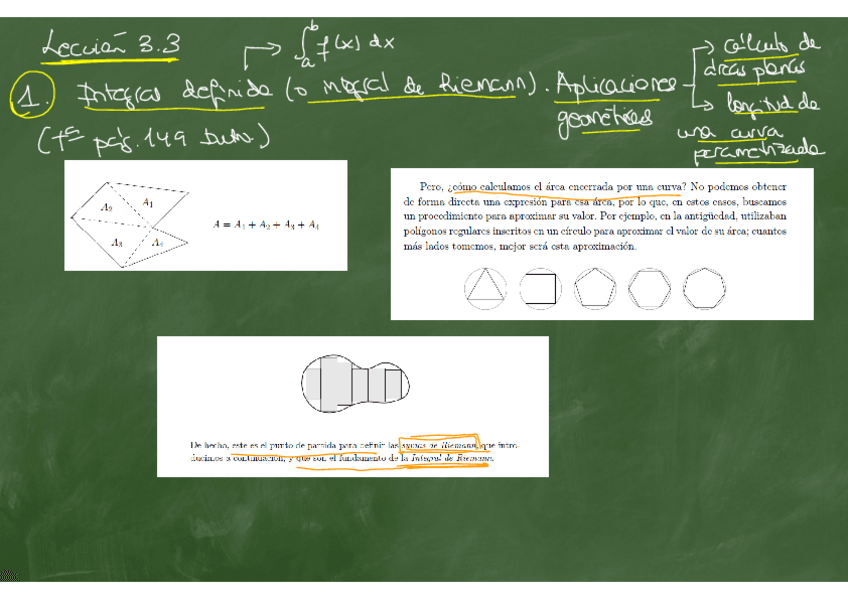 Lección 3.3
∫ₐᵇ f(x) dx
1. Integral definida (o integral de Riemann). Aplicaciones geométricas
→ cálculo de áreas planas
→ longitud de una curva parametrizada
(Tª pág. 149 tuto.)
A₁
A₂
A₃
A₄
A = A₁ + A₂ + A₃ + A₄
Pero, ¿cómo calculamos el área encerrada por una curva? No podemos obtener
de forma directa una expresión para esa área, por lo que, en estos casos, buscamos
un procedimiento para aproximar su valor. Por ejemplo, en la antigüedad, utilizaban
polígonos regulares inscritos en un círculo para aproximar el valor de su área; cuantos
más lados tomemos, mejor será esta aproximación.
De hecho, este es el punto de partida para definir las sumas de Riemann, que intro-
ducimos a continuación, y que son el fundamento de la Integral de Riemann.